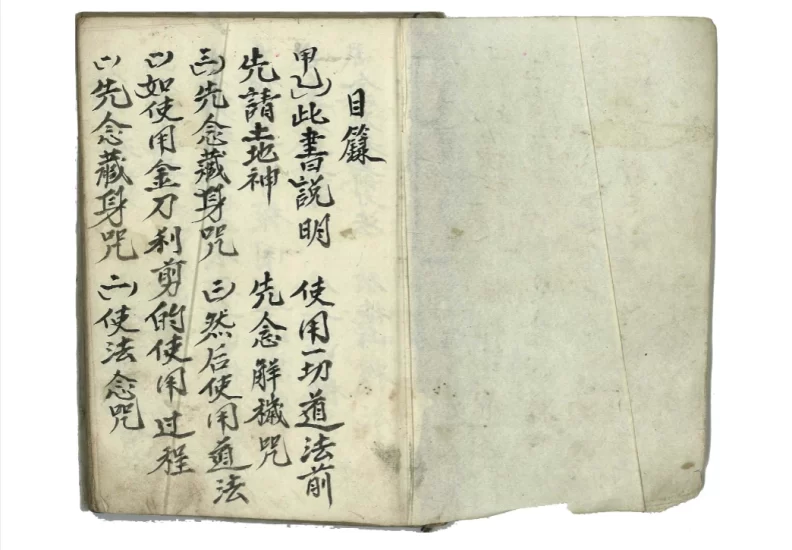 目籙
甲乙)此書説明　使用一切道法前
先請土地神　先念解穢咒
三)先念藏身咒　三)然后使用道法
一)如使用金刀利剪的使用过程
一)先念藏身咒　二)使法念咒